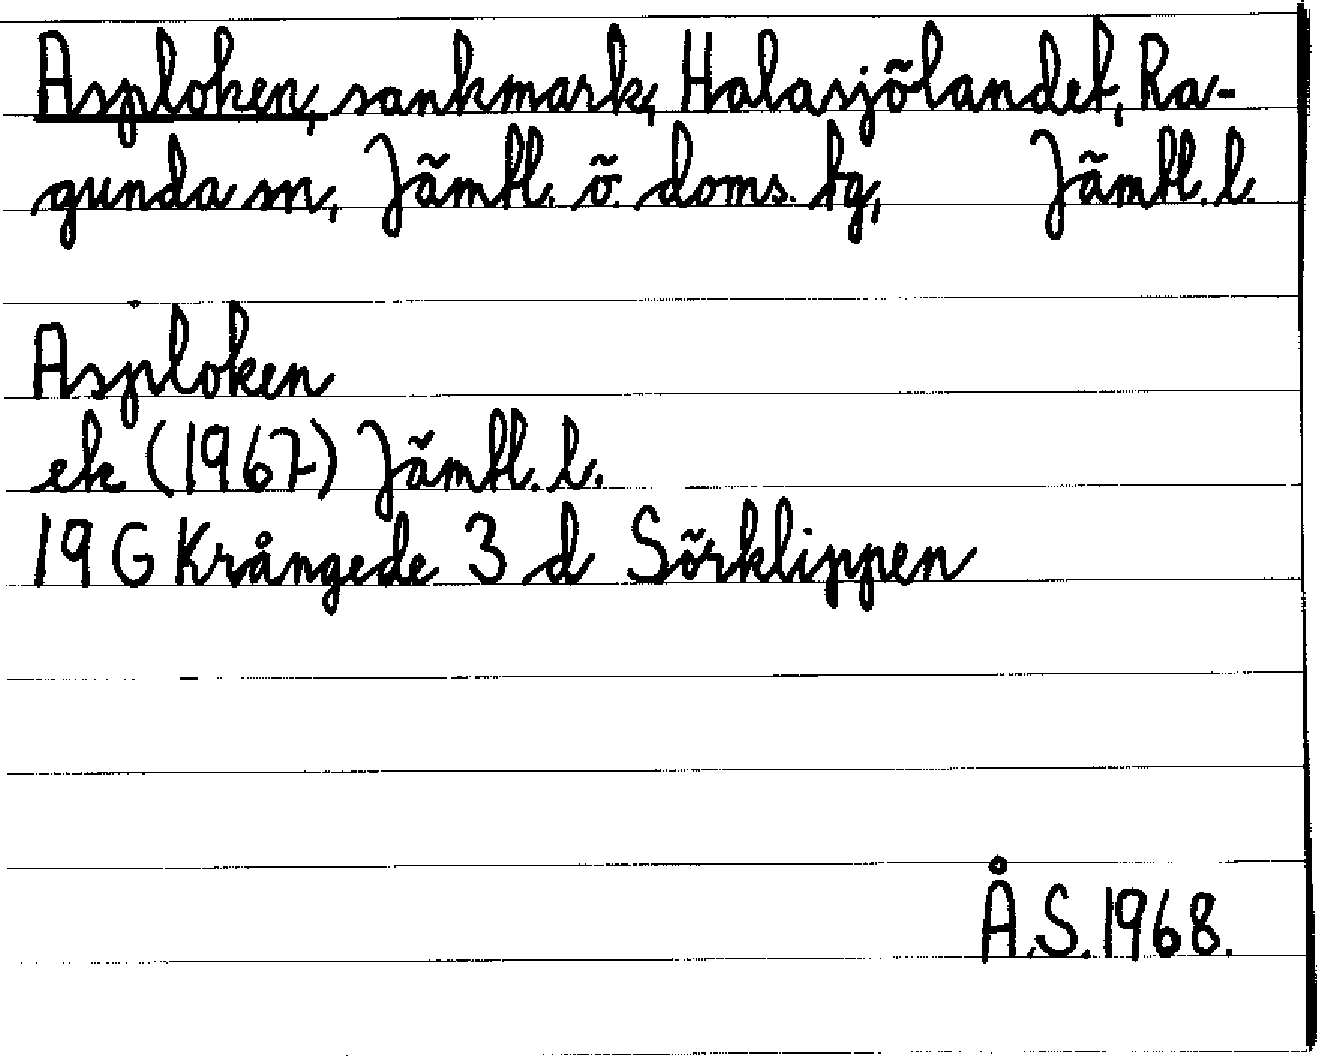 Asploken, sankmark, Halasjölandet, Ra-
gunda sn, Jämtl. ö. doms. tg, Jämtl. l.
Asploken
ek (1967) Jämtl. l.
19 G Krångede 3 d Sörklippen
Å.S. 1968.